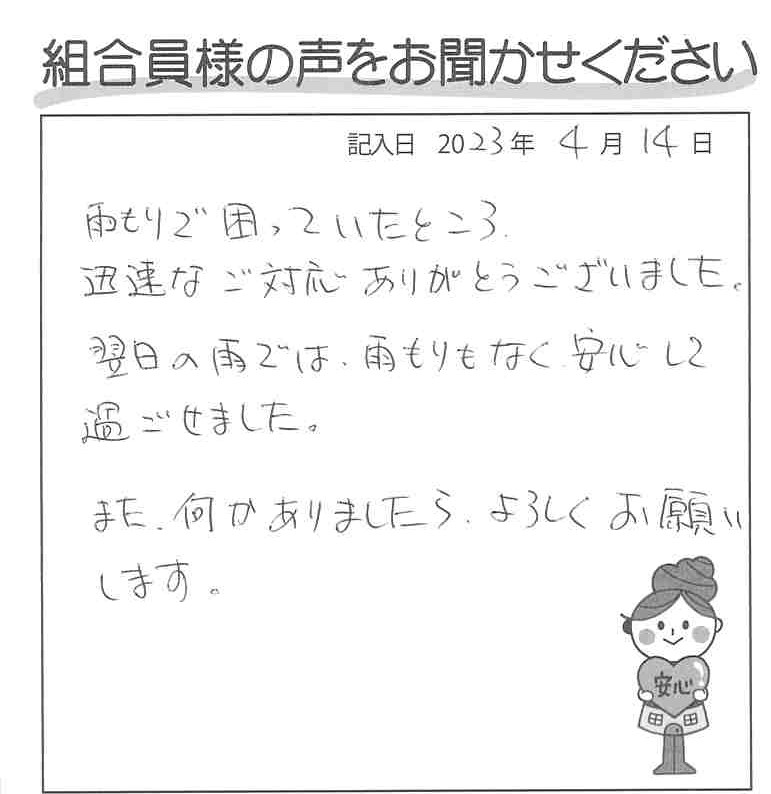 組合員様の声をお聞かせください
記入日 2023年 4月 14日
雨もりで困っていたところ、
迅速なご対応ありがとうございました。
翌日の雨では、雨もりもなく、安心して
過ごせました。
また、何かありましたら、よろしくお願い
します。
安心